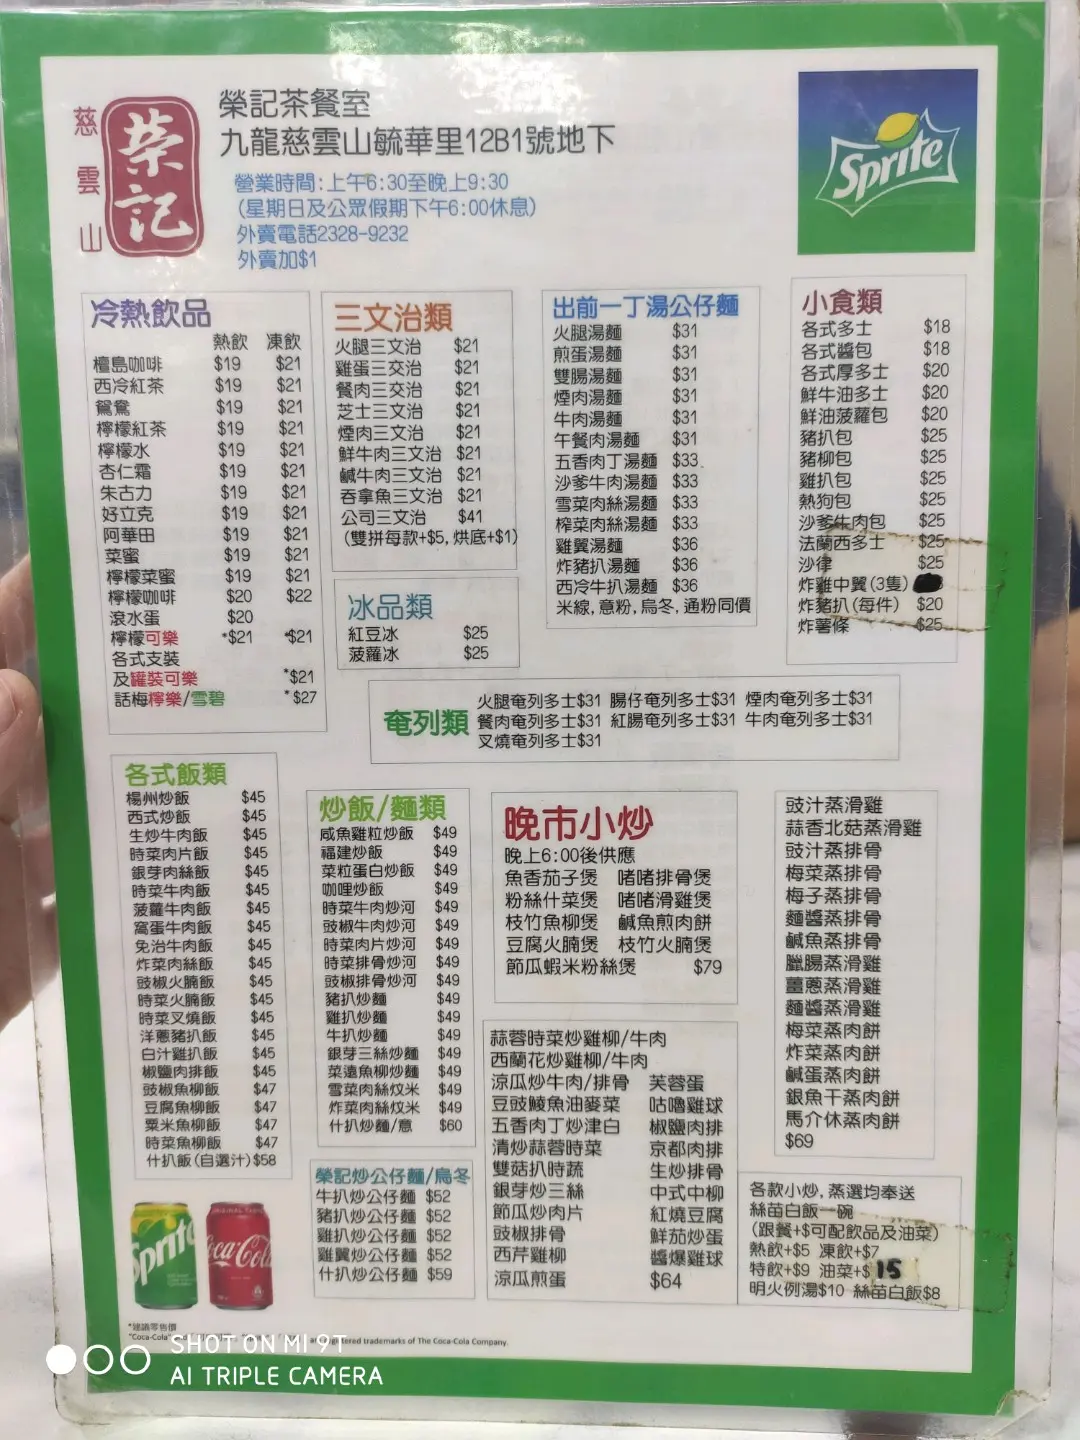 慈雲山
榮記
榮記茶餐室
九龍慈雲山毓華里12B1號地下
營業時間:上午6:30至晚上9:30
(星期日及公眾假期下午6:00休息)
外賣電話2328-9232
外賣加$1
Sprite
冷熱飲品
熱飲 凍飲
檀島咖啡 $19 $21
西冷紅茶 $19 $21
鴛鴦 $19 $21
檸檬紅茶 $19 $21
檸檬水 $19 $21
杏仁霜 $19 $21
朱古力 $19 $21
好立克 $19 $21
阿華田 $19 $21
菜蜜 $19 $21
檸檬菜蜜 $19 $21
檸檬咖啡 $20 $22
滾水蛋 $20
檸檬可樂 *$21 *$21
各式支裝
及罐裝可樂 *$21
話梅檸樂/雪碧 *$27
三文治類
火腿三文治 $21
雞蛋三交治 $21
餐肉三交治 $21
芝士三文治 $21
煙肉三文治 $21
鮮牛肉三文治 $21
鹹牛肉三文治 $21
吞拿魚三文治 $21
公司三文治 $41
(雙拼每款+$5,烘底+$1)
冰品類
紅豆冰 $25
菠蘿冰 $25
出前一丁湯公仔麵
火腿湯麵 $31
煎蛋湯麵 $31
雙腸湯麵 $31
煙肉湯麵 $31
牛肉湯麵 $31
午餐肉湯麵 $31
五香肉丁湯麵 $33
沙爹牛肉湯麵 $33
雪菜肉絲湯麵 $33
榨菜肉絲湯麵 $33
雞翼湯麵 $36
炸豬扒湯麵 $36
西冷牛扒湯麵 $36
米線,意粉,烏冬,通粉同價
小食類
各式多士 $18
各式醬包 $18
各式厚多士 $20
鮮牛油多士 $20
鮮油菠蘿包 $20
豬扒包 $25
豬柳包 $25
雞扒包 $25
熱狗包 $25
沙爹牛肉包 $25
法蘭西多士 $25
沙律 $25
炸雞中翼(3隻)
炸豬扒(每件) $20
炸薯條 $25
奄列類
火腿奄列多士$31 腸仔奄列多士$31 煙肉奄列多士$31
餐肉奄列多士$31 紅腸奄列多士$31 牛肉奄列多士$31
叉燒奄列多士$31
各式飯類
楊州炒飯 $45
西式炒飯 $45
生炒牛肉飯 $45
時菜肉片飯 $45
銀芽肉絲飯 $45
時菜牛肉飯 $45
菠蘿牛肉飯 $45
窩蛋牛肉飯 $45
免治牛肉飯 $45
炸菜肉絲飯 $45
豉椒火腩飯 $45
時菜火腩飯 $45
時菜叉燒飯 $45
洋蔥豬扒飯 $45
白汁雞扒飯 $45
椒鹽肉排飯 $45
豉椒魚柳飯 $47
豆腐魚柳飯 $47
粟米魚柳飯 $47
時菜魚柳飯 $47
什扒飯(自選汁)$58
炒飯/麵類
咸魚雞粒炒飯 $49
福建炒飯 $49
菜粒蛋白炒飯 $49
咖哩炒飯 $49
時菜牛肉炒河 $49
豉椒牛肉炒河 $49
時菜肉片炒河 $49
時菜排骨炒河 $49
豉椒排骨炒河 $49
豬扒炒麵 $49
雞扒炒麵 $49
牛扒炒麵 $49
銀芽三絲炒麵 $49
菜遠魚柳炒麵 $49
雪菜肉絲炆米 $49
炸菜肉絲炆米 $49
什扒炒麵/意 $60
榮記炒公仔麵/烏冬
牛扒炒公仔麵 $52
豬扒炒公仔麵 $52
雞扒炒公仔麵 $52
雞翼炒公仔麵 $52
什扒炒公仔麵 $59
晚市小炒
晚上6:00後供應
魚香茄子煲 啫啫排骨煲
粉絲什菜煲 啫啫滑雞煲
枝竹魚柳煲 鹹魚煎肉餅
豆腐火腩煲 枝竹火腩煲
節瓜蝦米粉絲煲 $79
蒜蓉時菜炒雞柳/牛肉
西蘭花炒雞柳/牛肉
涼瓜炒牛肉/排骨 芙蓉蛋
豆豉鯪魚油麥菜 咕嚕雞球
五香肉丁炒津白 椒鹽肉排
清炒蒜蓉時菜 京都肉排
雙菇扒時蔬 生炒排骨
銀芽炒三絲 中式中柳
節瓜炒肉片 紅燒豆腐
豉椒排骨 鮮茄炒蛋
西芹雞柳 醬爆雞球
涼瓜煎蛋 $64
豉汁蒸滑雞
蒜香北菇蒸滑雞
豉汁蒸排骨
梅菜蒸排骨
梅子蒸排骨
麵醬蒸排骨
鹹魚蒸排骨
臘腸蒸滑雞
薑蔥蒸滑雞
麵醬蒸滑雞
梅菜蒸肉餅
炸菜蒸肉餅
鹹蛋蒸肉餅
銀魚干蒸肉餅
馬介休蒸肉餅
$69
各款小炒,蒸選均奉送
絲苗白飯一碗
(跟餐+$可配飲品及油菜)
熱飲+$5 凍飲+$7
特飲+$9 油菜+$15
明火例湯$10 絲苗白飯$8
Sprite
Coca-Cola
*建議零售價
"Coca-Cola" are registered trademarks of The Coca-Cola Company.
SHOT ON MI 9T
AI TRIPLE CAMERA